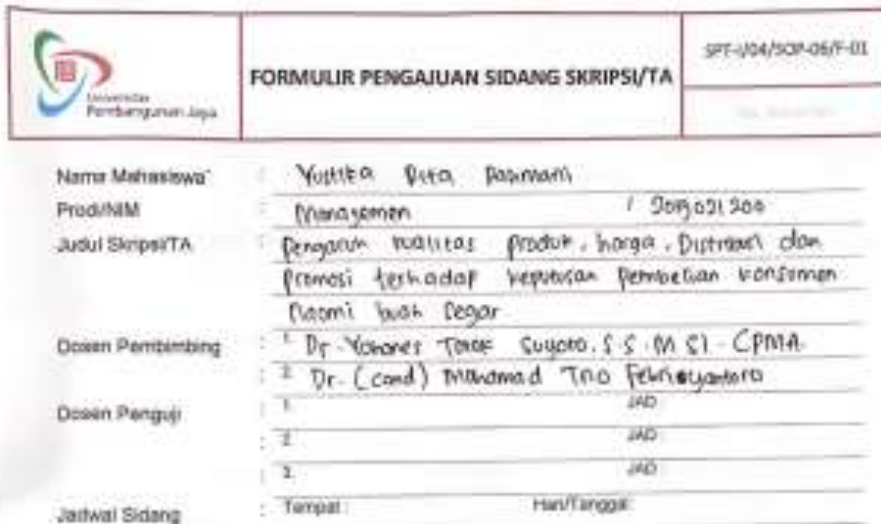 Universitas
Pembangunan Jaya
FORMULIR PENGAJUAN SIDANG SKRIPSI/TA
SPT-I/04/SOP-06/F-01
Nama Mahasiswa : Yustika Dita
Prodi/NIM : Manajemen /
Judul Skripsi/TA : Pengaruh kualitas produk, harga, Distribusi dan
Promosi terhadap keputusan Pembelian konsumen
buah Segar
Dosen Pembimbing : 1. Dr. Yohanes Totok Suyoto. S.S. M.Si. CPMA
: 2. Dr. (cand) Mohamad Trio Febriyantoro
Dosen Penguji : 1. JAD :
: 2. JAD :
: 3. JAD :
Jadwal Sidang : Tempat : Hari/Tanggal: